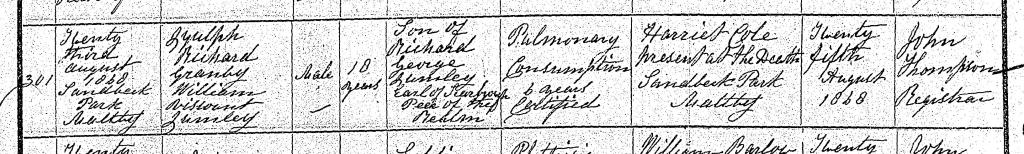 301
Twenty
third
August
1868
Sandbeck
Park
Maltby
Lyulph
Richard
Granby
William
Viscount
Lumley
Male
18
years
Son of
Richard
George
Lumley
Earl of Scarbrough
Peer of the
Realm
Pulmonary
Consumption
years
Certified
Harriet Cole
Present at the Death
Sandbeck Park
Maltby
Twenty
fifth
August
1868
John
Thompson
Registrar
Twenty
William Barlow
Twenty
John